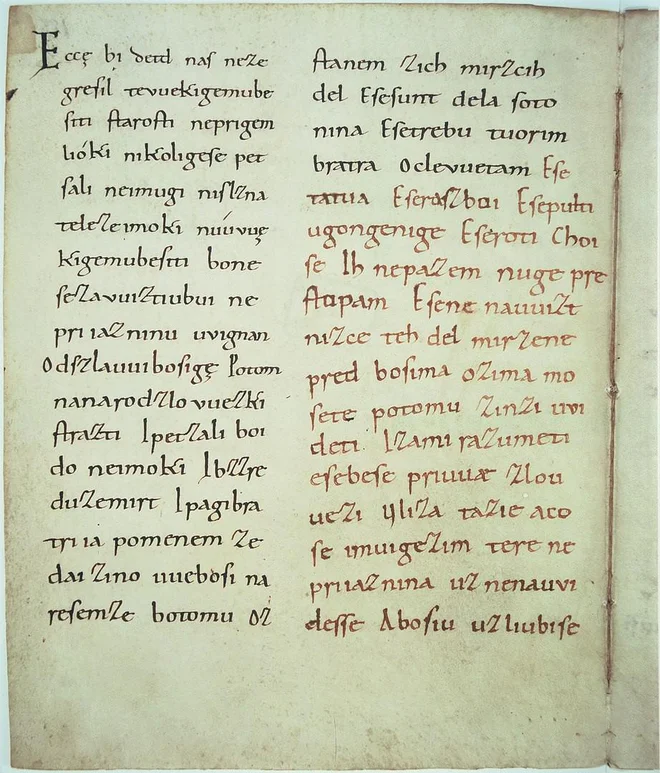 Eccę bi detd naſ neze
greſil teuuekigemube
ſiti ſtaroſti neprigem
lióki nikoligeſe pet
ſali neimugi niſlzna
teleze imoki nuúvuę
kigemubeſiti bone
ſezavuiztiubui ne
priiazninu uvignan
Odſzlauuiboſigę Potom
nanarodzlovuezki
ſtrazti Ipetzali boi
do neimoki Ibzzre
duzemirt Ipagibra
triia pomenem Ze
dai Zino uueboſi na
reſemZe botomu Oz
ſtanem Zich mirzcih
del Eſeſunt dela ſoto
nina Eſetrebu tuorim
bratra Oclevuetam Eſe
tatua Eſeraſzboi Eſepulti
ugongenige Eſeroti Choi
ſe Ih nepazem nuge pre
ſtopam Eſene nauuizt
nizce teh del mirzene
pred boſima oZima mo
ſete potomu ZinZi uvi
deti Izami razumeti
eſebeſe priuuæ Zlou
ueZi Uliza tazie aco
ſe imuigeZim tere ne
priiaznina uz nenauvi
deſſe Aboſiu uzliubiſe